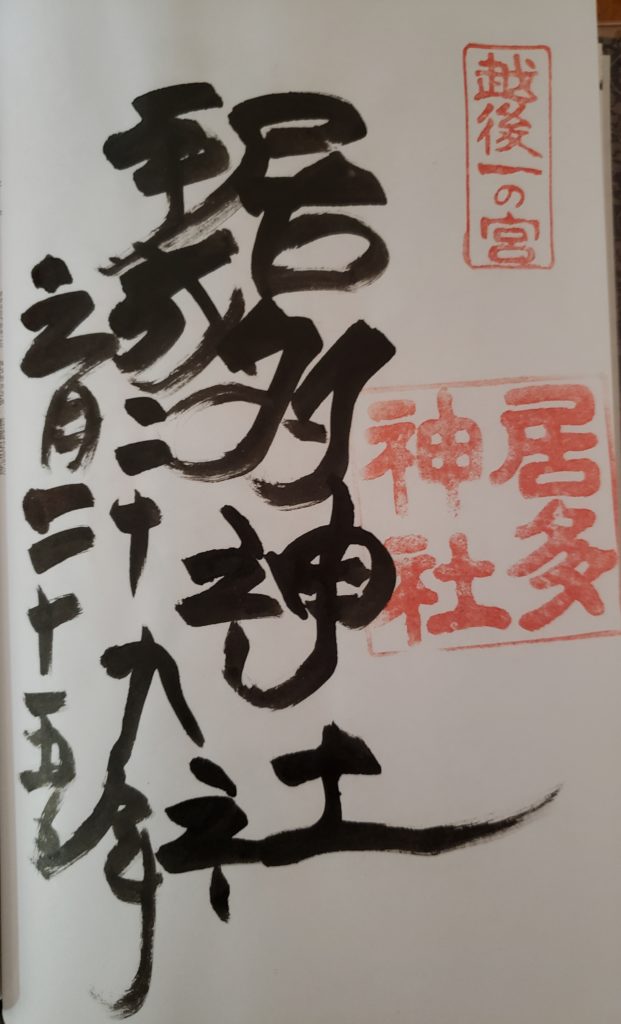 越後一の宮
居多
神社
居多神社
平成二十九年
六月二十五日